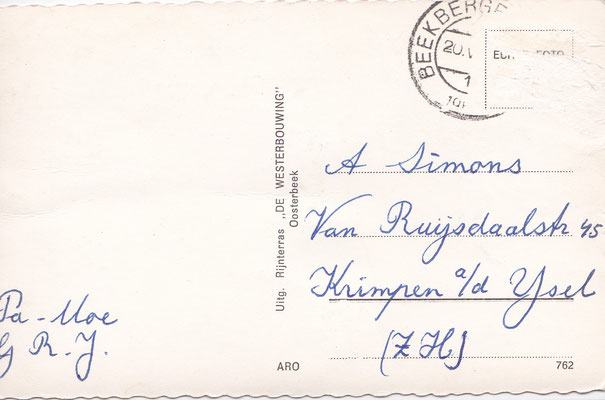 BEEKBERGE
20.V
ECHTE FOTO
Uitg. Rijnterras „DE WESTERBOUWING"
Oosterbeek
A Simons
Van Ruijsdaalstr 45
Krimpen a/d Ysel
(Z H)
Pa - Moe
R. J.
ARO
762